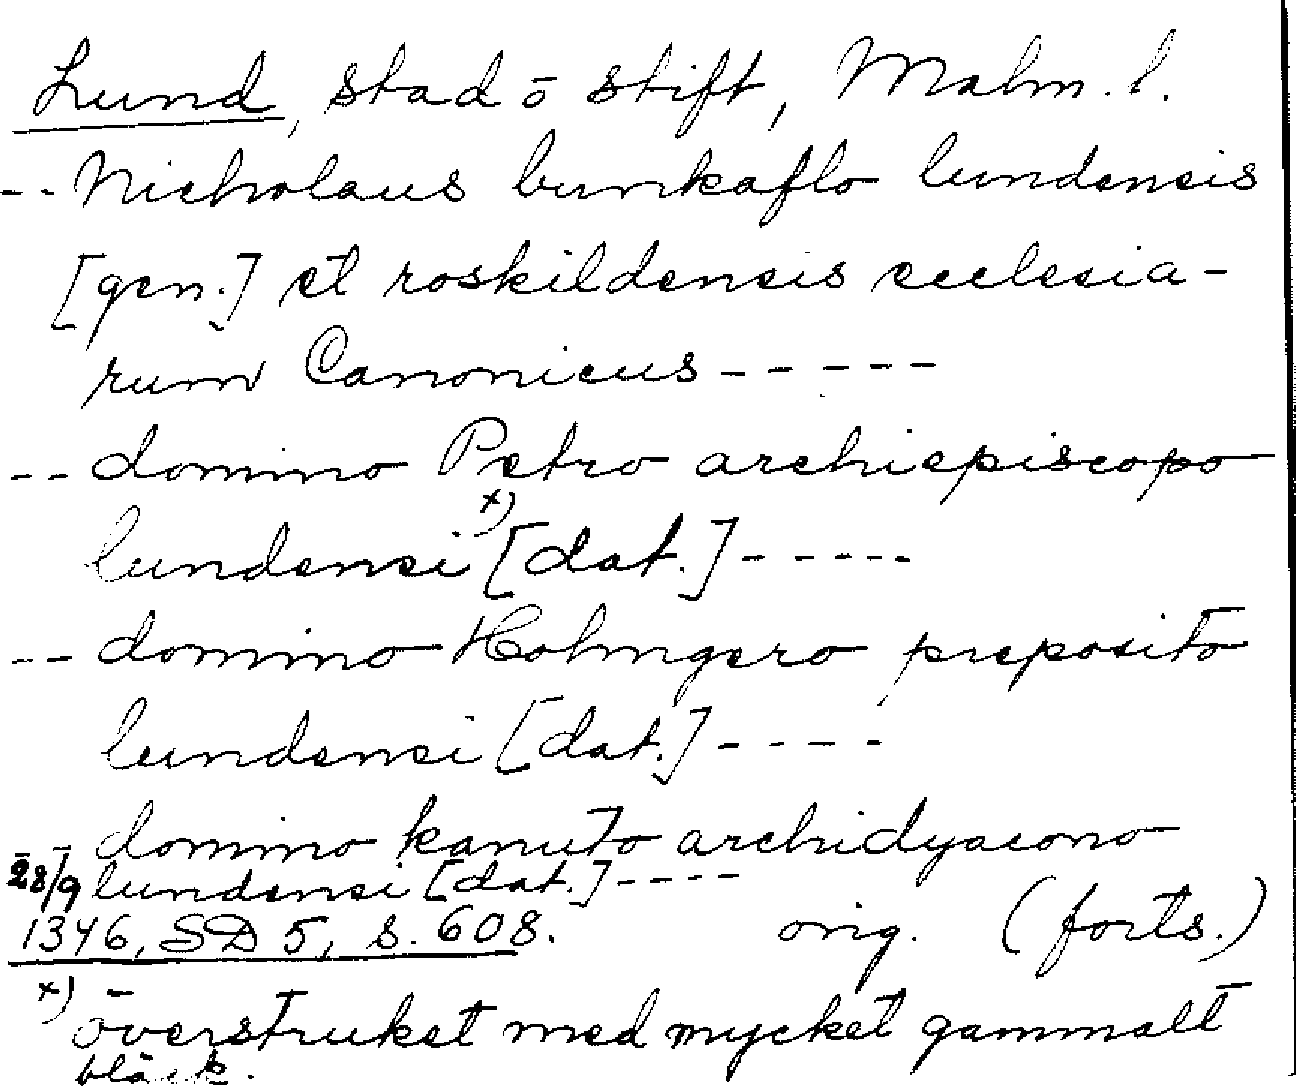 Lund, stad ō stift, Malm. l.
-- Nicholaus bunkaflo lundensis
[gen.] et roskildensis ecclesia-
rum Canonicus -----
-- domino Petro archiepiscopo
lundensi x) [dat.] -----
-- domino Holmgero preposito
lundensi [dat.] ----
-- domino kanuto archidyacono
28/9 lundensi [dat.] ----
1346, SD 5, s. 608. orig. (forts.)
x) överstruket med mycket gammalt
bläck.